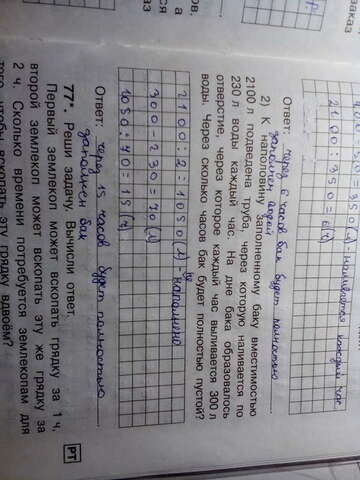 заказ
350 (л) - наливается каждый час
2100 : 350 = 6 (ч)
Ответ: через 6 часов бак будет полностью
заполнен водой
2) К наполовину заполненному баку вместимостью
2100 л подведена труба, через которую наливается по
230 л воды каждый час. На дне бака образовалось
отверстие, через которое каждый час выливается 300 л
воды. Через сколько часов бак будет полностью пустой?
2100 : 2 = 1050 (л) - наполнено
300 - 230 = 70 (л)
1050 : 70 = 15 (ч)
Ответ: через 15 часов будет полностью
заполнен бак
77*. Реши задачу. Вычисли ответ.
Первый землекоп может вскопать грядку за 1 ч,
второй землекоп может вскопать эту же грядку за
2 ч. Сколько времени потребуется землекопам для
того, чтобы вскопать эту грядку вдвоём?
РТ